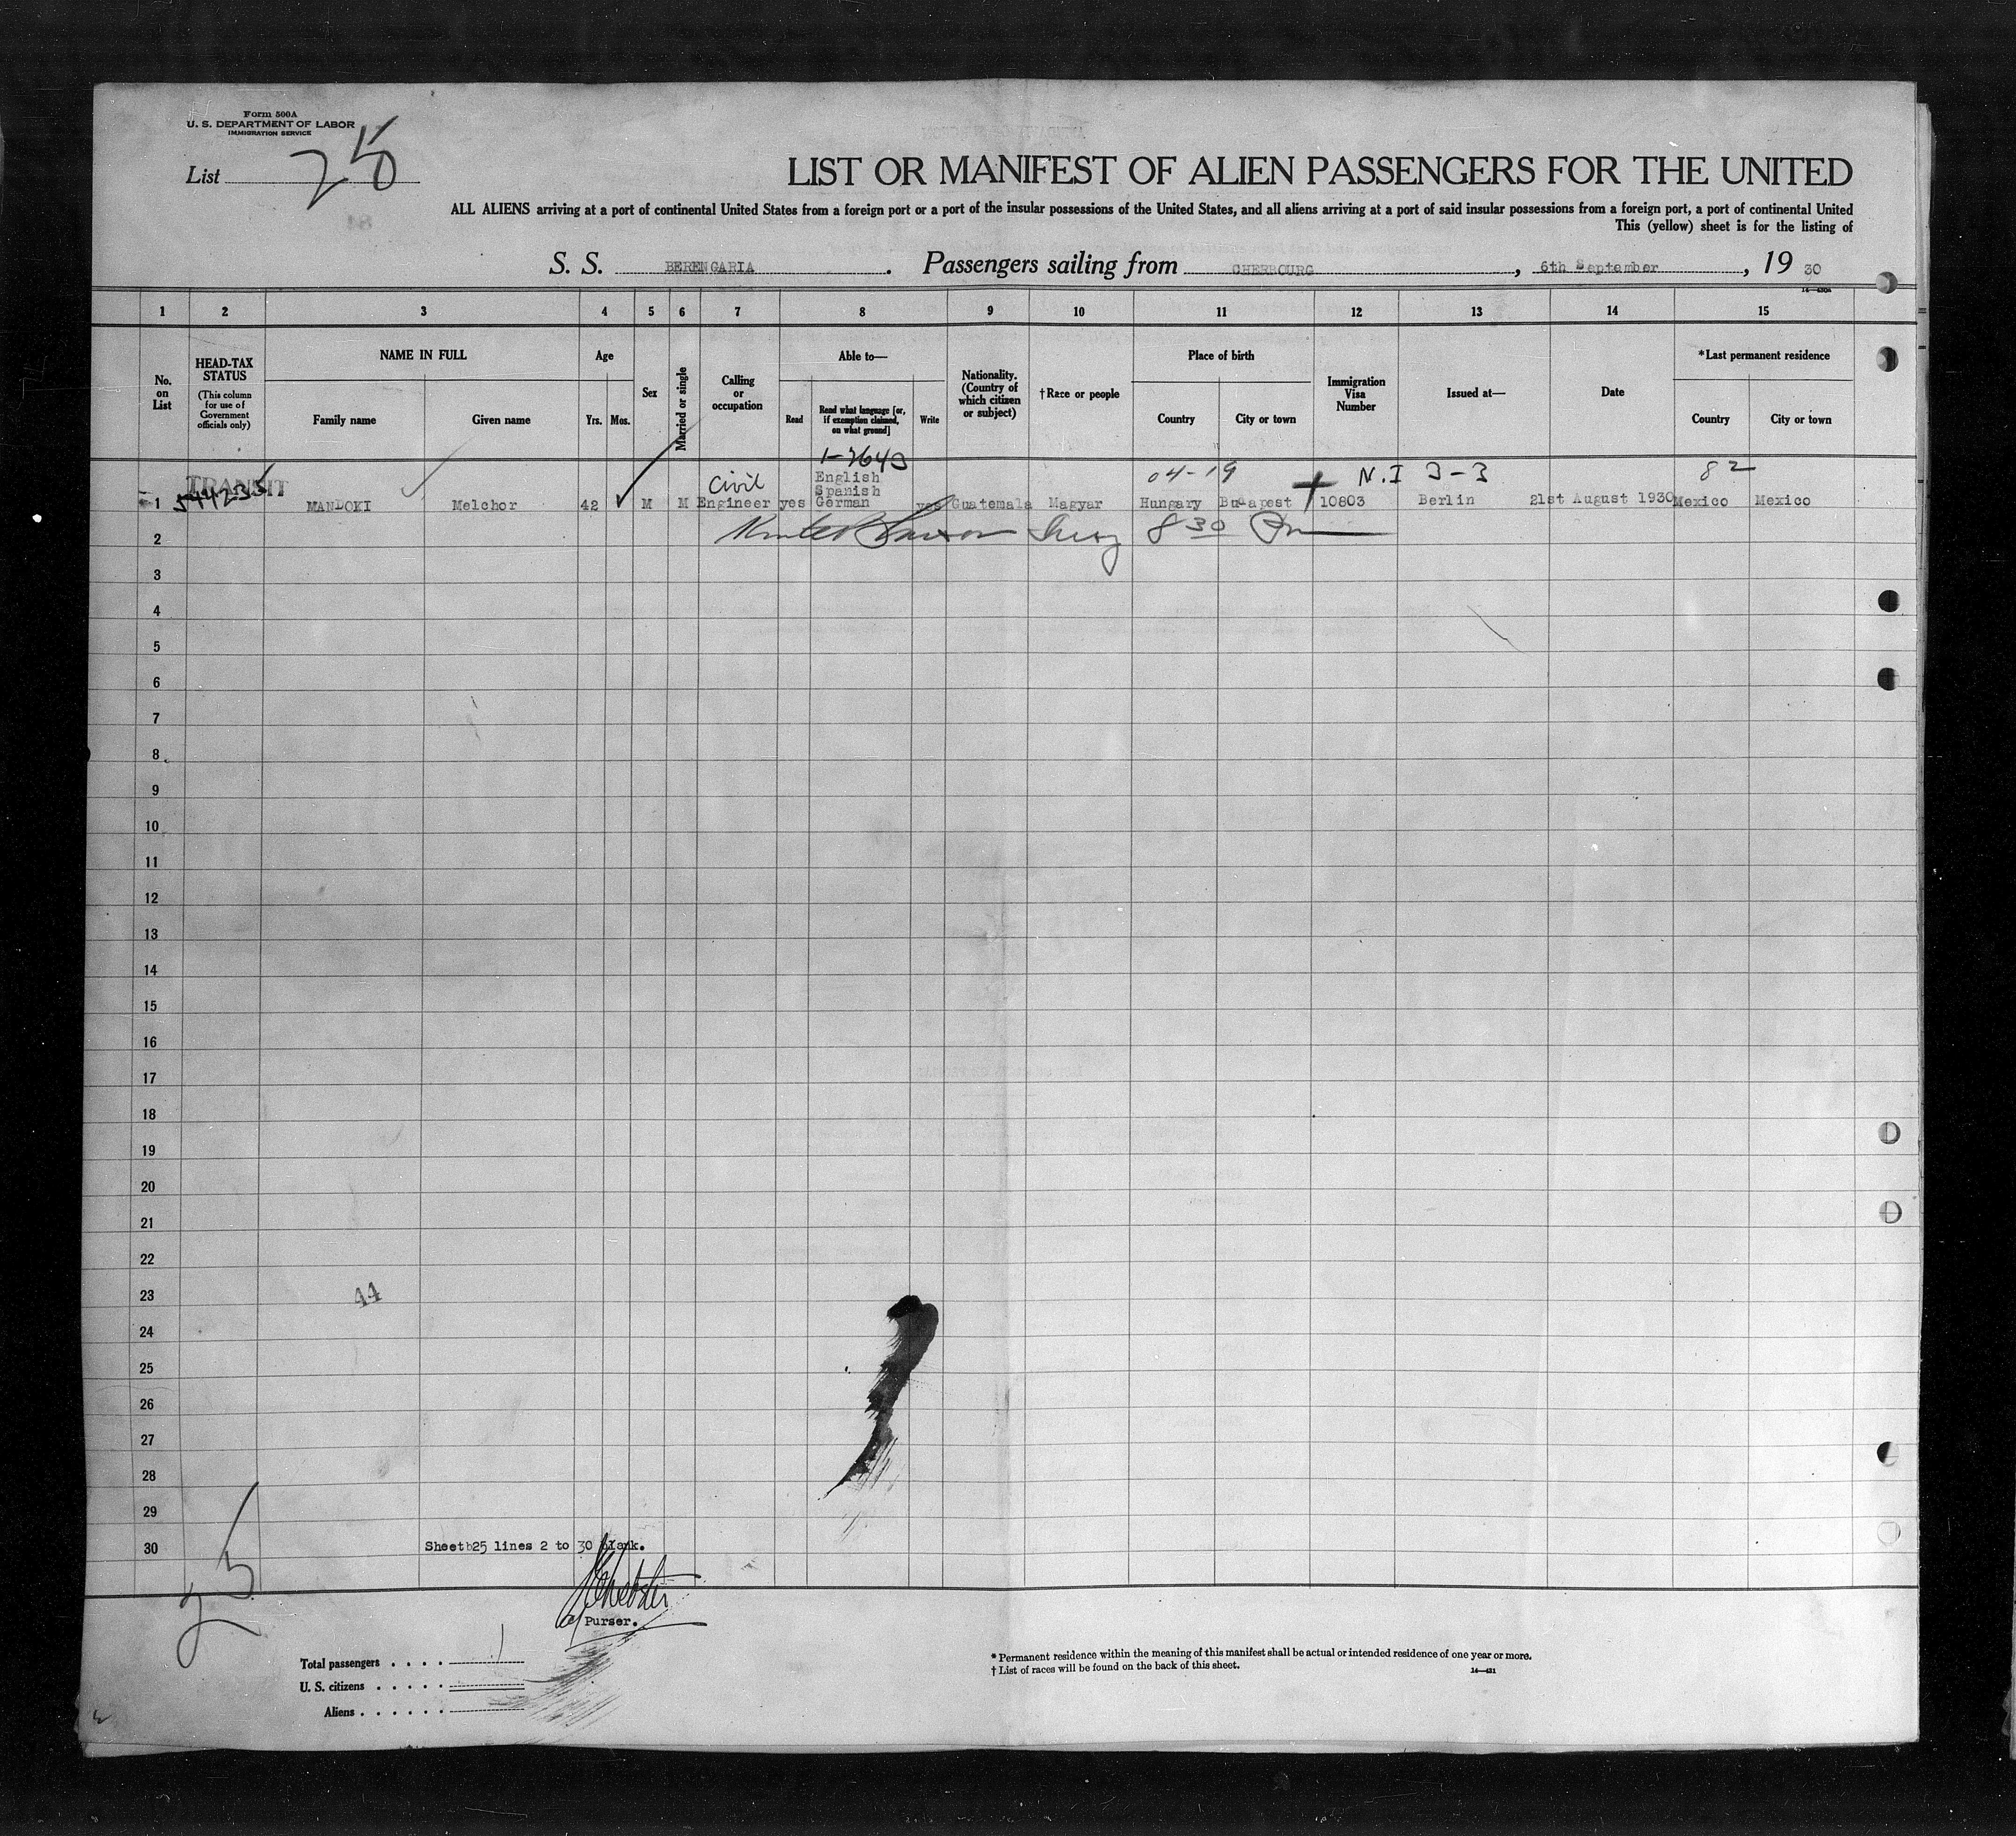 Form 500A
U. S. DEPARTMENT OF LABOR
IMMIGRATION SERVICE
List 25
LIST OR MANIFEST OF ALIEN PASSENGERS FOR THE UNITED
ALL ALIENS arriving at a port of continental United States from a foreign port or a port of the insular possessions of the United States, and all aliens arriving at a port of said insular possessions from a foreign port, a port of continental United
This (yellow) sheet is for the listing of
S. S. BERENGARIA. Passengers sailing from CHERBOURG, 6th September, 19 30
1 2 3 4 5 6 7 8 9 10 11 12 13 14 15
No. on List
HEAD-TAX STATUS
(This column for use of Government officials only)
NAME IN FULL
Family name Given name
Age
Yrs. Mos.
Sex
Married or single
Calling or occupation
Able to—
Read Read what language [or, if exemption claimed, on what ground] Write
Nationality. (Country of which citizen or subject)
†Race or people
Place of birth
Country City or town
Immigration Visa Number
Issued at—
Date
*Last permanent residence
Country City or town
04-19 N.I 3-3 82
TRANSIT
Civil English
Spanish
1 MANDOKI Melchor 42 M M Engineer yes German yes Guatemala Magyar Hungary Budapest 10803 Berlin 21st August 1930 Mexico Mexico
2 8 30
3
4
5
6
7
8
9
10
11
12
13
14
15
16
17
18
19
20
21
22
23 44
24
25
26
27
28
29
30 Sheetb25 lines 2 to 30 blank.
25
Purser.
Total passengers . . . . 1
U. S. citizens . . . . .
Aliens . . . . . .
* Permanent residence within the meaning of this manifest shall be actual or intended residence of one year or more.
† List of races will be found on the back of this sheet.
14—431